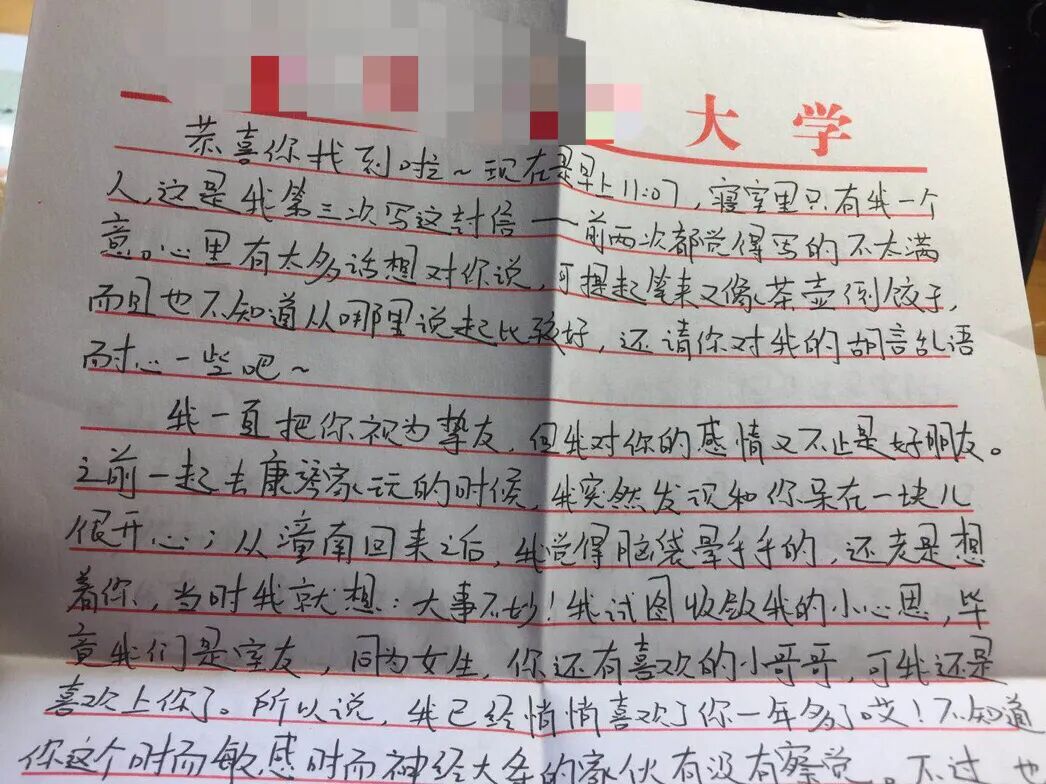 大学
恭喜你找到啦~现在是早上11:07，寝室里只有我一个
人，这是我第三次写这封信——前两次都觉得写的不太满
意。心里有太多话想对你说，可提起笔来又像茶壶倒饺子，
而且也不知道从哪里说起比较好，还请你对我的胡言乱语
耐心一些吧~
我一直把你视为挚友，但我对你的感情又不止是好朋友。
之前一起去康家玩的时候，我突然发现和你呆在一块儿
很开心；从潼南回来之后，我觉得脑袋晕乎乎的，还老是想
着你，当时我就想：大事不妙！我试图收敛我的小心思，毕
竟我们是室友，同为女生，你还有喜欢的小哥哥，可我还是
喜欢上你了。所以说，我已经悄悄喜欢了你一年多了哎！不知道
你这个时而敏感时而神经大条的家伙有没有察觉。不过，也